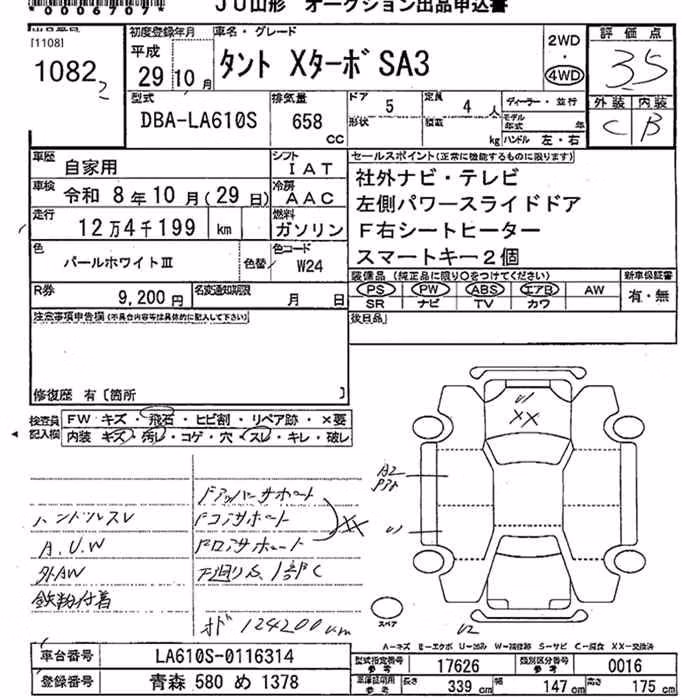 *0006707*
JU山形 オークション出品申込書
[1108]
1082 2
初度登録年月
平成
29年 10月
車名・グレード
タント XターボSA3
2WD
・
4WD
評価点
3.5
外装 内装
C B
型式
DBA-LA610S
排気量
658
cc
ドア 5
形状
定員 4 人
積載 kg
ディーラー・並行
モデル年式 年
ハンドル 左・右
車歴 自家用
シフト IAT
車検 令和 8年10月(29日)
冷房 AAC
走行 12万4千199 km
燃料 ガソリン
色 パールホワイトⅢ 色替
色コード W24
R券 9,200円
名変通知期限 月 日
セールスポイント(正常に機能するものに限ります)
社外ナビ・テレビ
左側パワースライドドア
F右シートヒーター
スマートキー2個
装備品(純正品に限り○をつけてください)
PS PW ABS エアB AW
SR ナビ TV カワ
新車保証書
有・無
注意事項申告欄(不具合内容等は具体的に記入して下さい)
後日品
修復歴 有[箇所 ]
検査員記入欄
FW キズ・飛石・ヒビ割・リペア跡・×要
内装 キズ・汚レ・コゲ・穴・スレ・キレ・破レ
ハンドルスレ
A.U.W
外AW
鉄粉付着
Fアッパーサポート
Fコアサポート
Fロアサポート
XX
下廻りS、1部C
オド 124200km
U1
XX
A2
U1
U2
スペア
A=キズ E=エクボ U=凹み W=補修跡 S=サビ C=腐食 XX=交換済
車台番号 LA610S-0116314
登録番号 青森 580 め 1378
型式指定番号 参考 17626
類別区分番号 参考 0016
車庫証明用 参考 長さ 339 cm 幅 147 cm 高さ 175 cm